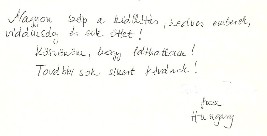 Nagyon szép a kiállítás, kedves emberek,
vidámság és sok ötlet!
Köszönöm, hogy láthattam!
További sok sikert kívánok!
Hungary